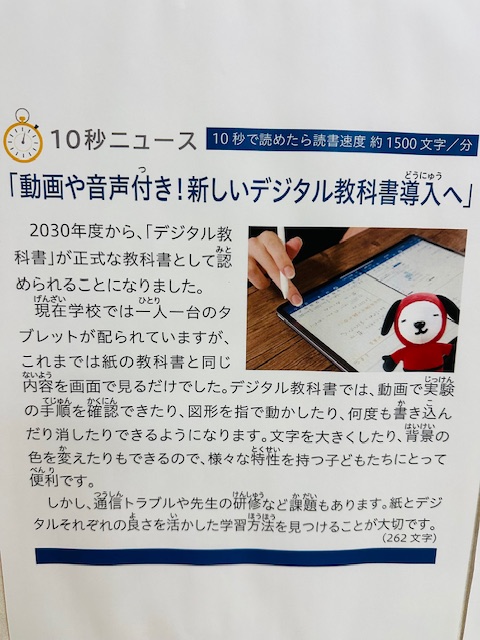 10秒ニュース
10秒で読めたら読書速度 約1500文字／分
「動画や音声付き！新しいデジタル教科書導入へ」
2030年度から、「デジタル教
科書」が正式な教科書として認
められることになりました。
現在学校では一人一台のタ
ブレットが配られていますが、
これまでは紙の教科書と同じ
内容を画面で見るだけでした。デジタル教科書では、動画で実験
の手順を確認できたり、図形を指で動かしたり、何度も書き込ん
だり消したりできるようになります。文字を大きくしたり、背景の
色を変えたりもできるので、様々な特性を持つ子どもたちにとって
便利です。
しかし、通信トラブルや先生の研修など課題もあります。紙とデジ
タルそれぞれの良さを活かした学習方法を見つけることが大切です。
（262文字）